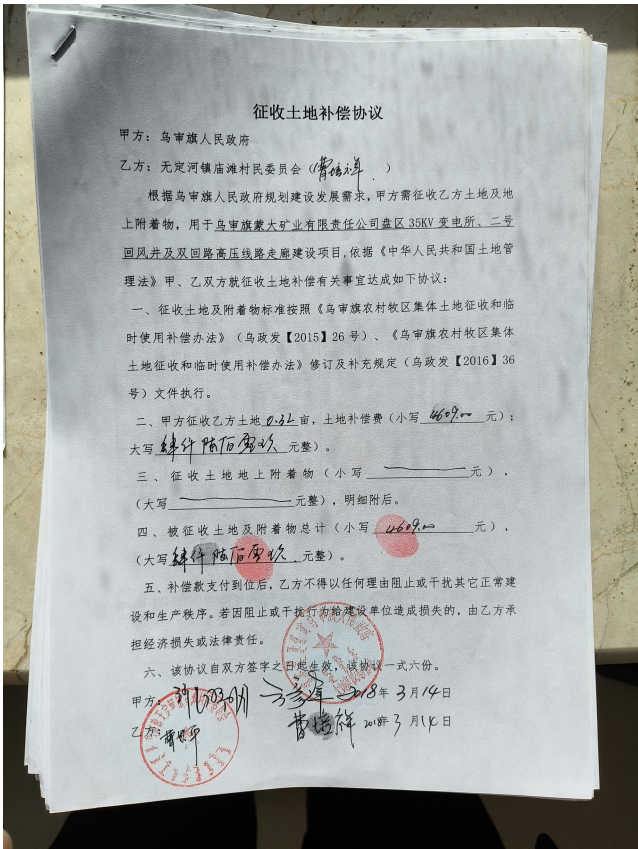 征收土地补偿协议
甲方：乌审旗人民政府
乙方：无定河镇庙滩村民委员会（曹培祥 ）
根据乌审旗人民政府规划建设发展需求，甲方需征收乙方土地及地
上附着物，用于乌审旗蒙大矿业有限责任公司盘区 35KV 变电所、二号
回风井及双回路高压线路走廊建设项目,依据《中华人民共和国土地管
理法》甲、乙双方就征收土地补偿有关事宜达成如下协议：
一、征收土地及附着物标准按照《乌审旗农村牧区集体土地征收和临
时使用补偿办法》（乌政发【2015】26 号）、《乌审旗农村牧区集体
土地征收和临时使用补偿办法》修订及补充规定（乌政发【2016】36
号）文件执行。
二、甲方征收乙方土地 0.32 亩，土地补偿费（小写 4609.00 元）；
大写 肆仟陆佰零玖 元整）。
三、征收土地地上附着物（小写 元），
（大写 元整），明细附后。
四、被征收土地及附着物总计（小写 4609.00 元），
（大写 肆仟陆佰零玖 元整）。
五、补偿款支付到位后，乙方不得以任何理由阻止或干扰其它正常建
设和生产秩序。若因阻止或干扰行为给建设单位造成损失的，由乙方承
担经济损失或法律责任。
六、该协议自双方签字之日起生效，该协议一式六份。
甲方： 2018年 3月14日
乙方： 曹培祥 2018年 3月14日